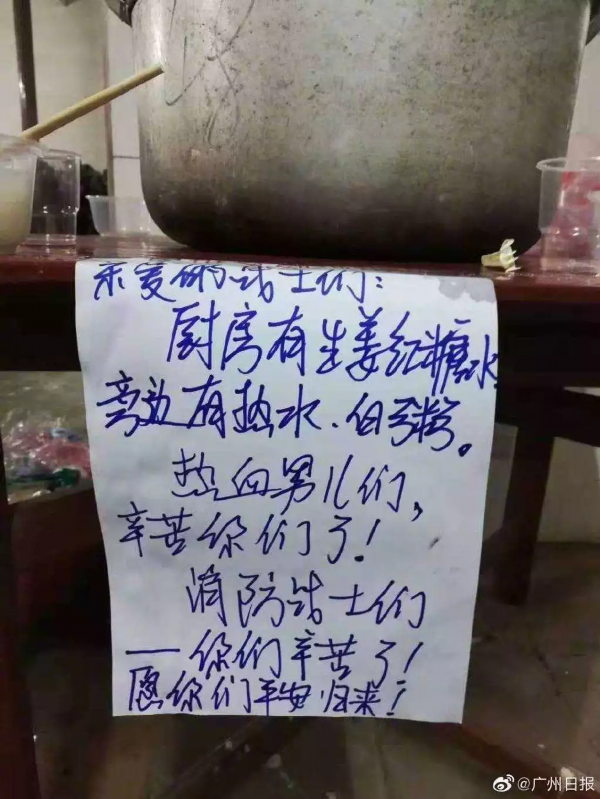 亲爱的战士们：
厨房有生姜红糖水
旁边有热水、白粥。
热血男儿们，
辛苦你们了！
消防战士们
——你们辛苦了！
愿你们平安归来！
@广州日报